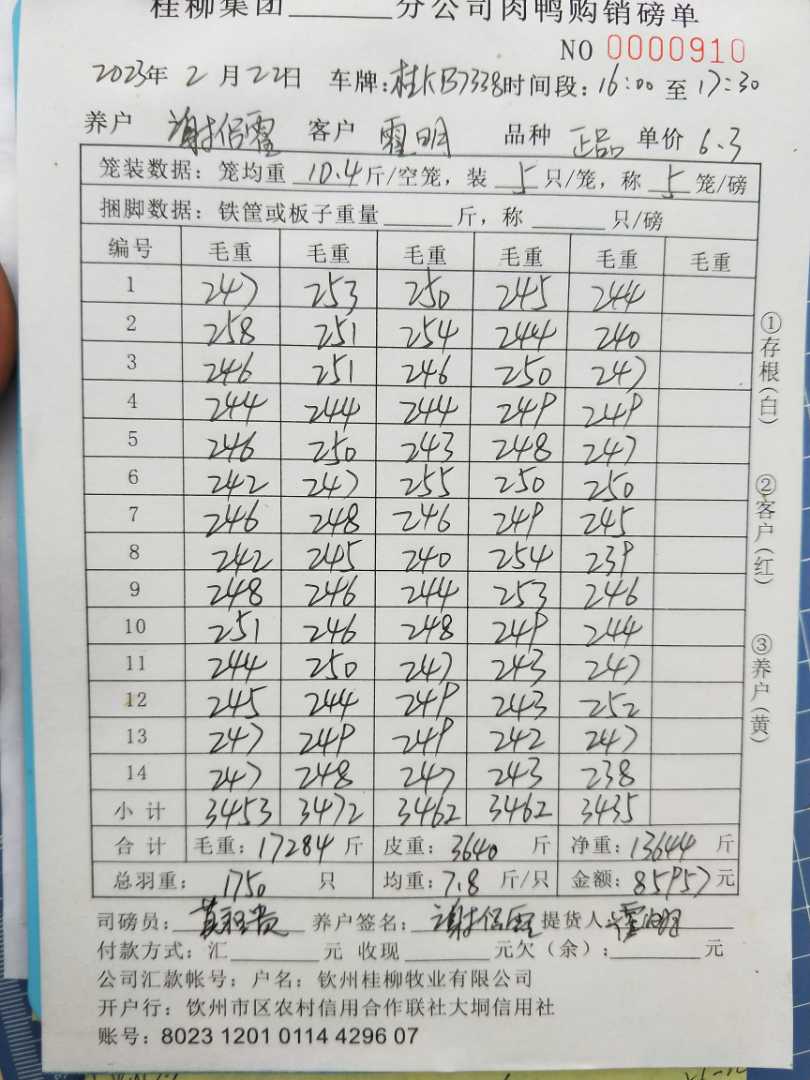 桂柳集团______分公司肉鸭购销磅单
NO 0000910
2023年 2 月 22日 车牌:桂KB7338 时间段: 16:00 至 17:30
养户 谢侶霍 客户 霍明 品种 正品 单价 6.3
笼装数据: 笼均重 10.4 斤/空笼, 装 5 只/笼, 称 5 笼/磅
捆脚数据: 铁筐或板子重量______斤, 称______只/磅
编号 毛重 毛重 毛重 毛重 毛重 毛重
1 247 253 250 245 244
2 258 251 254 244 240
3 246 251 246 250 247
4 244 244 244 249 249
5 246 250 243 248 247
6 242 247 255 250 250
7 246 248 246 249 245
8 242 245 240 254 239
9 248 246 244 253 246
10 251 246 248 249 244
11 244 250 247 243 247
12 245 244 249 243 252
13 247 249 249 242 247
14 247 248 247 243 238
小计 3453 3472 3462 3462 3435
合计 毛重: 17284 斤 皮重: 3640 斤 净重: 13644 斤
总羽重: 1750 只 均重: 7.8 斤/只 金额: 85957 元
司磅员: 养户签名: 谢侶霍 提货人: 霍明
付款方式: 汇______元 收现______元欠(余):______元
公司汇款帐号: 户名: 钦州桂柳牧业有限公司
开户行: 钦州市区农村信用合作联社大垌信用社
账号: 8023 1201 0114 4296 07
①存根(白)
②客户(红)
③养户(黄)